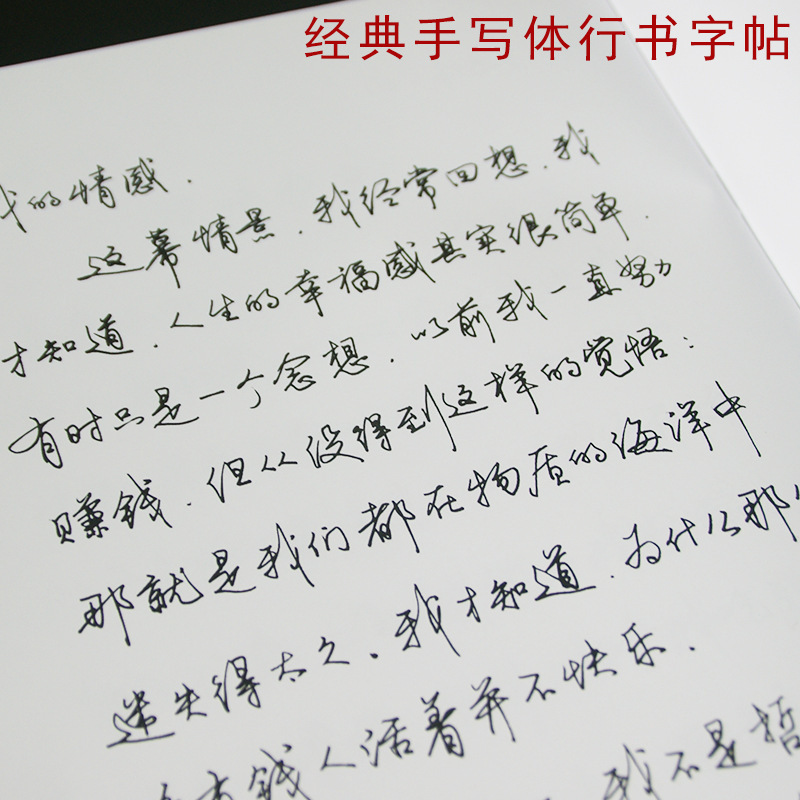 经典手写体行书字帖
我的情感.
这幕情景.我经常回想.我
才知道.人生的幸福感其实很简单.
有时只是一个念想.以前我一直努力
赚钱.但从没得到这样的觉悟:
那就是我们都在物质的海洋中
迷失得太久.我才知道.为什么那
有钱人活着并不快乐.
我不是哲